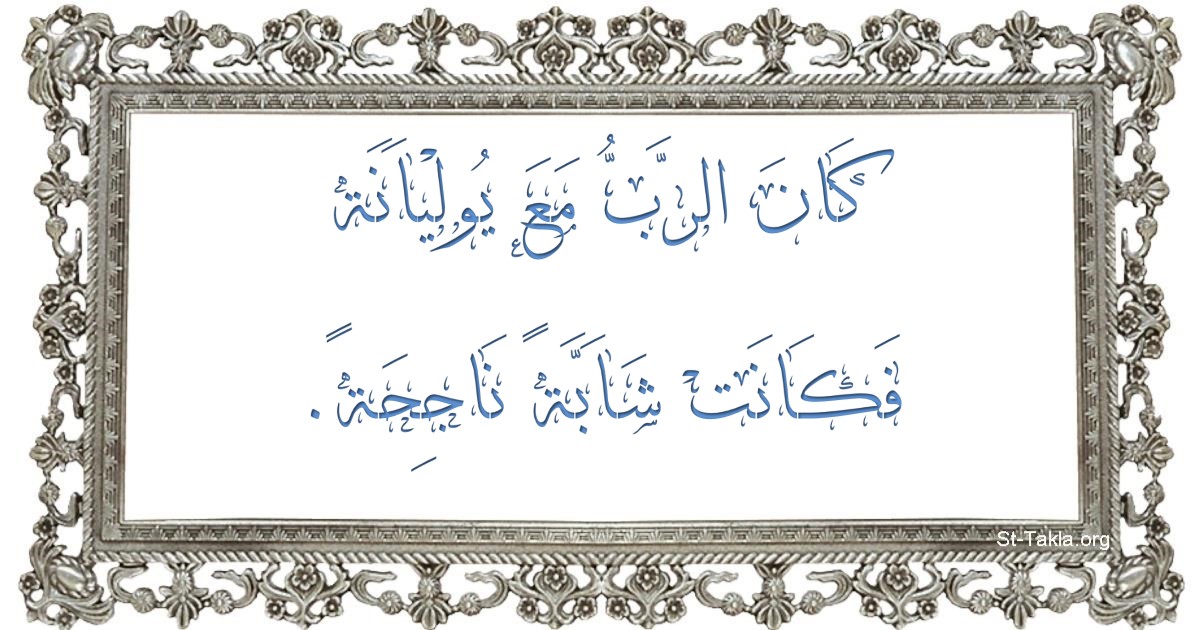 كَانَ الرَّبُّ مَعَ يُولْيَانَةْ
فَكَانَتْ شَابَّةً نَاجِحَةً.
St-Takla.org